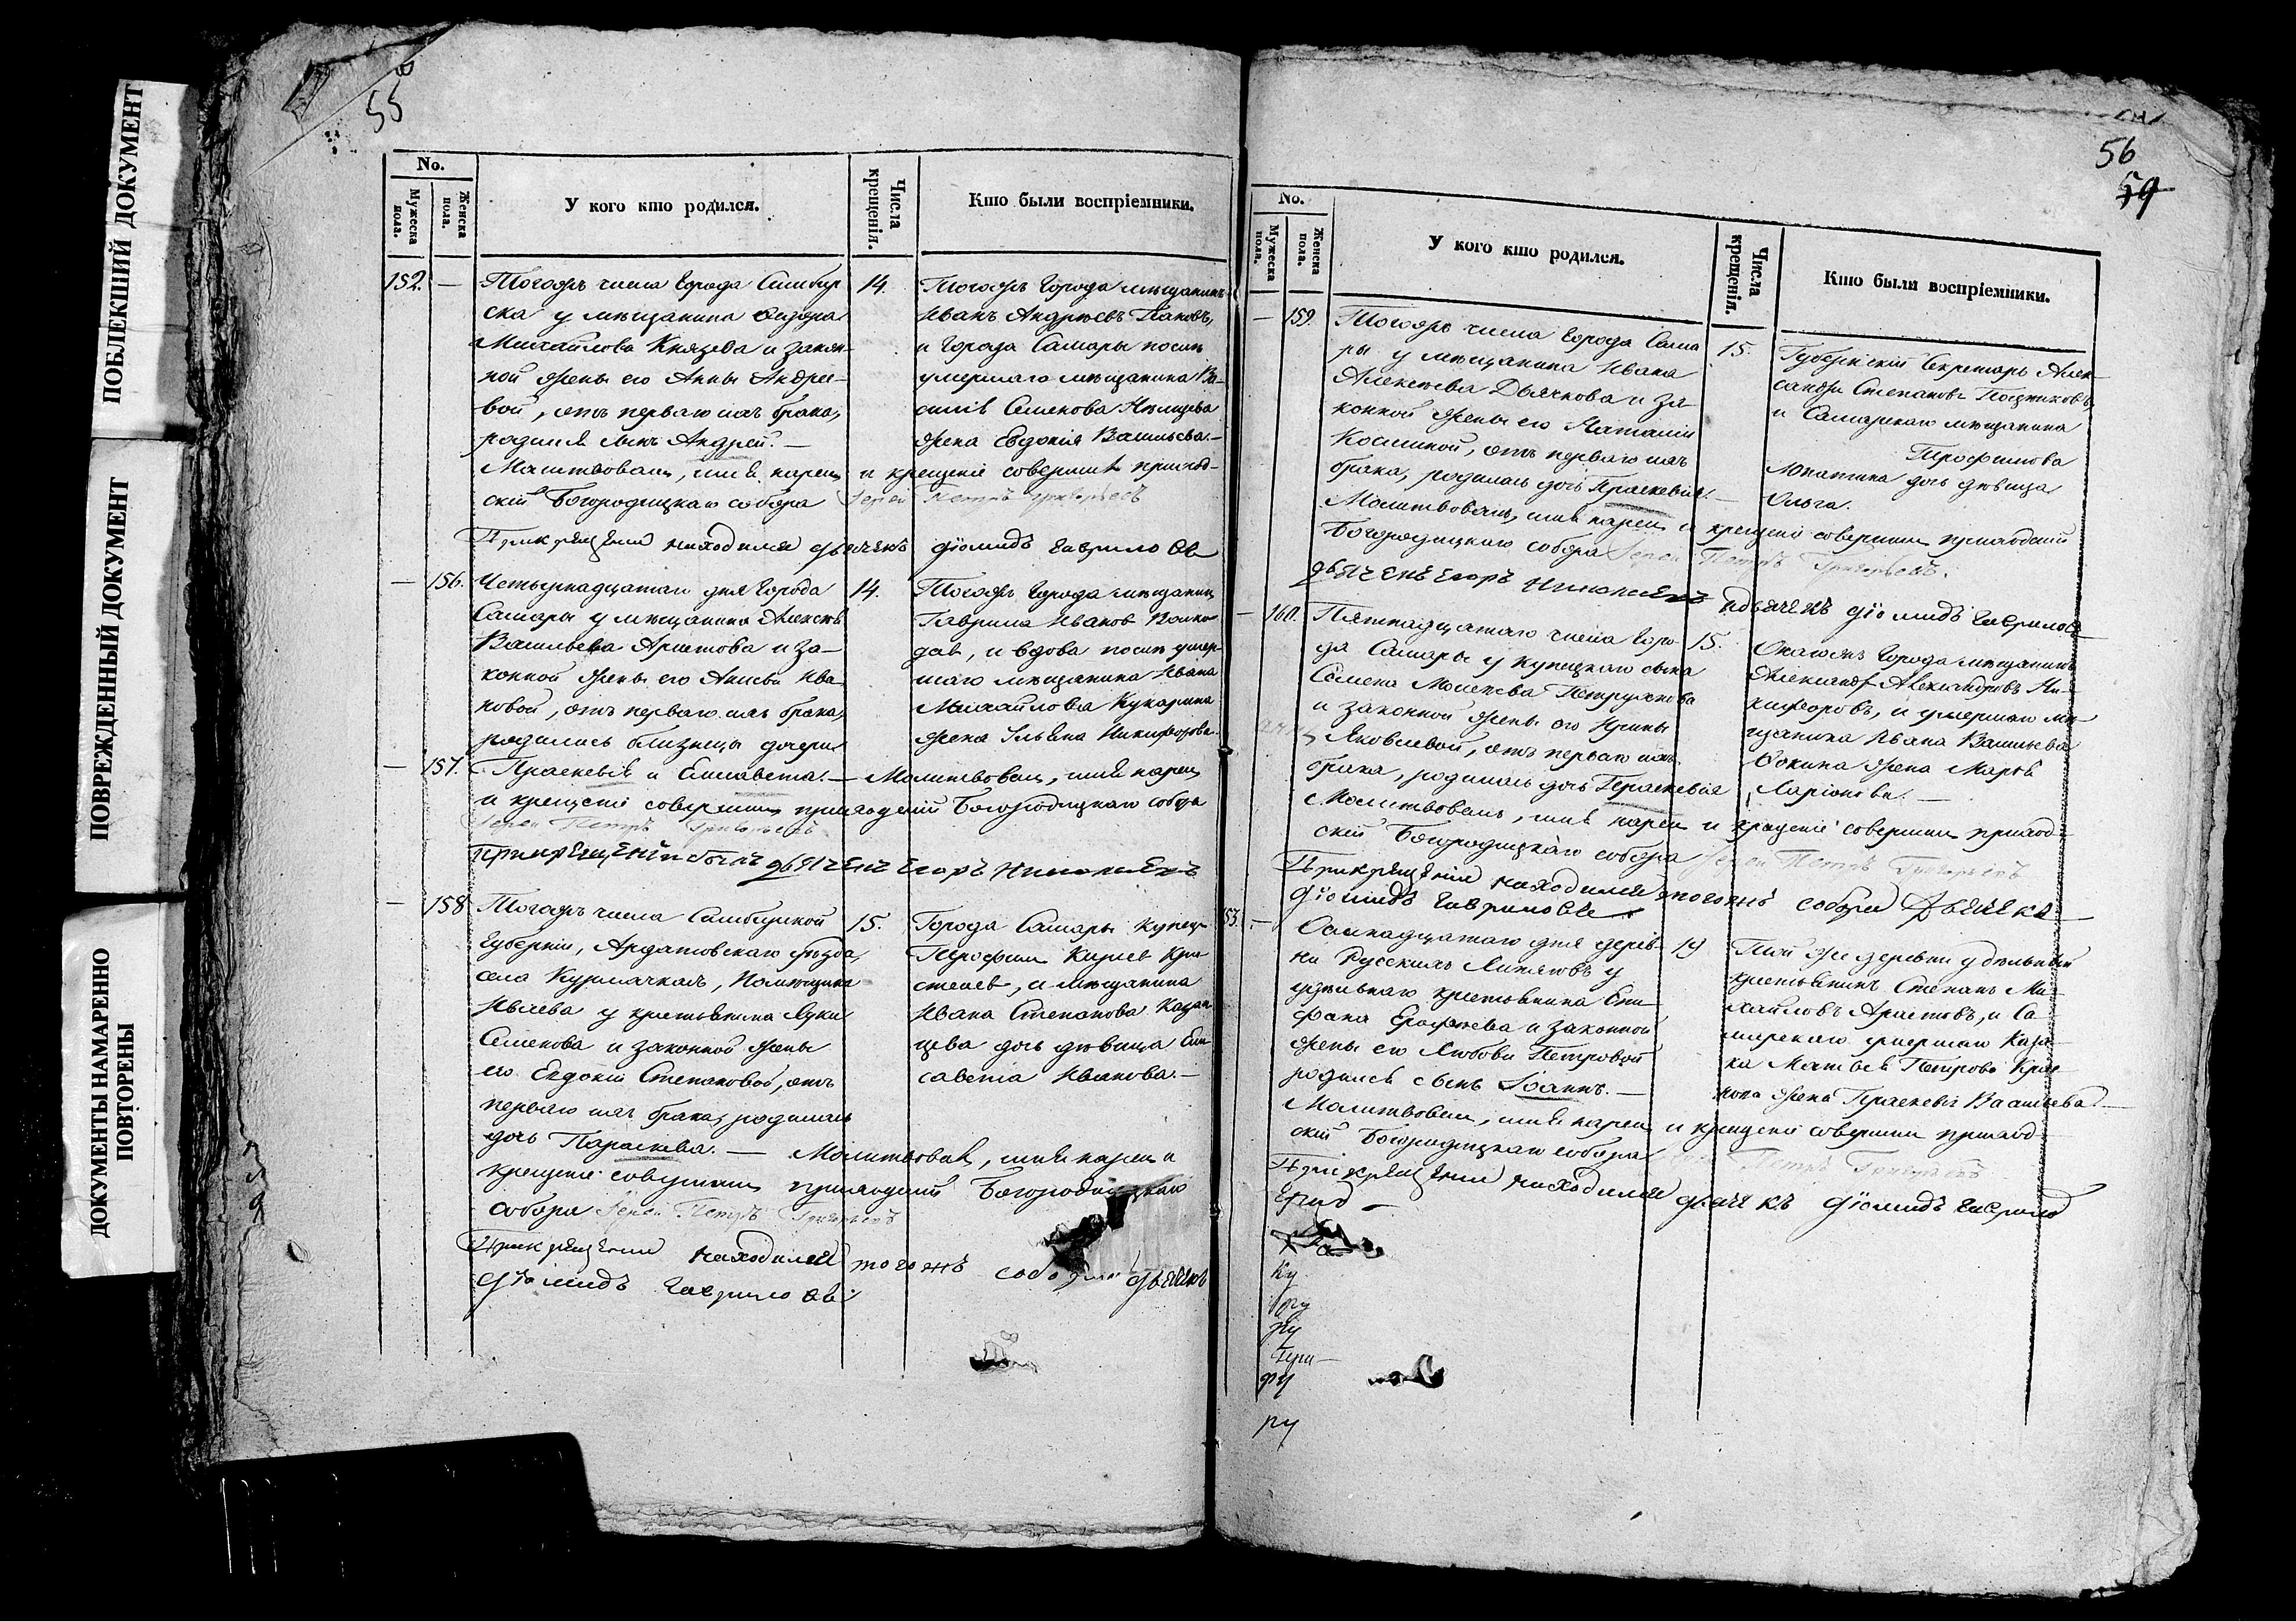 ПОБЛЕКШИЙ ДОКУМЕНТ
ПОВРЕЖДЕННЫЙ ДОКУМЕНТ
ДОКУМЕНТЫ НАМАРЕННО
ПОВТОРЕНЫ
55
No.
Мужеска пола.
Женска пола.
У кого кто родился.
Числа крещенія.
Кто были воспріемники.
152. —
Тогожъ числа города Симбир
ска у мѣщанина
Михайлова Князева и закон-
ной жены его Анны Андрее-
вой, отъ перваго ихъ брака,
родился сынъ Андрей. —
14.
Тогожъ города мѣщанинъ
Иванъ Андреевъ Пановъ,
и города Самары послѣ
умершаго мѣщанина Ва-
силія Семенова
жена Евдокія Васильева. —
Молитвовалъ, имя нарекъ и крещеніе совершилъ приход-
скій Богородицкаго собора Іерей Петръ Григорьевъ
При крещении находился дьячекъ Діомидъ Гаврилов
— 156.
Четырнадцатаго дня города
Самары у мѣщанина Алексѣя
Васильева Аристова и за-
конной жены его Ива
новой, отъ перваго ихъ брака,
родились близнецы дочери
— 157.
Праскевія и Елисавета. —
14.
Тогожъ города мѣщанинъ
Гаврила Иванов
и вдова послѣ умер-
шаго мѣщанина Ивана
Михайлова Кукарина
жена Ульяна Никифорова.
Молитвовалъ, имя нарекъ
и крещеніе совершилъ приходскій Богородицкаго собора
Іерей Петръ Григорьевъ
При крещеніи былъ дьячекъ Егоръ
— 158
Тогожъ числа Симбирской
Губерніи, Ардатовскаго уѣзда,
села Курмачкасъ, Помѣщика
у крестьянина Луки
Семенова и законной жены
его Евдокіи Степановой, отъ
перваго ихъ брака, родилась
дочь Параскева. —
15.
Города Самары купецъ
Трофим
и мѣщанина
Ивана Степанова Казан
цева дочь дѣвица Ели
савета Иванова. —
Молитвовалъ, имя нарекъ и
крещеніе совершилъ приходскій Богородицкаго
собора Іерей Петръ Григорьевъ
При крещении находился тогожъ собора дьячекъ
Діомидъ Гаврилов
56
59
No.
Мужеска пола.
Женска пола.
У кого кто родился.
Числа крещенія.
Кто были воспріемники.
— 159.
Тогожъ числа города Сама
ры у мѣщанина Ивана
Алексѣева Дьячкова и за-
конной жены его Наталіи
Косминой, отъ перваго ихъ
брака, родилась дочь Праскевія. —
15.
Губернскій Секретарь Алек-
сандръ Степановъ
и Самарскаго мѣщанина
Трофимова
дочь дѣвица
Ольга.
Молитвовалъ, имя нарекъ и крещеніе совершилъ приходскій
Богородицкаго собора Іерей Петръ Григорьевъ.
дьячекъ Егоръ дьячекъ Діомидъ Гаврилов
— 160.
Пятнадцатаго числа горо-
да Самары у купецкаго сына
Семена Моисеева
и законной жены его Ирины
Яковлевой, отъ перваго ихъ
брака, родилась дочь Праскевія
15.
города мѣщанинъ
Александръ Александровъ Ни-
кифоровъ, и умершаго мѣ-
щанина Ивана Васильева
Фокина жена Марья
Ларіонова. —
Молитвовалъ, имя нарекъ и крещеніе совершилъ приход-
скій Богородицкаго собора Іерей Петръ Григорьевъ
При крещении находился тогожъ собора дьячекъ
Діомидъ Гаврилов
153. —
Осмнадцатаго дня дерев-
ни Русскихъ Липяговъ у
удѣльнаго крестьянина Епи-
фана Ерофеева и законной
жены его Любови Петровой
родился сынъ Іоаннъ. —
19
Той же деревни удѣльный
крестьянинъ Степанъ Ми-
хайловъ и Са-
марскаго умершаго Каза-
ка Матвея Петрова
жена Праскевія Васильева. —
Молитвовалъ, имя нарекъ и крещеніе совершилъ приход-
скій Богородицкаго собора Петръ Григорьевъ
При крещении находился дьячекъ Діомидъ Гаврилов
Ку
ру
ру
ру